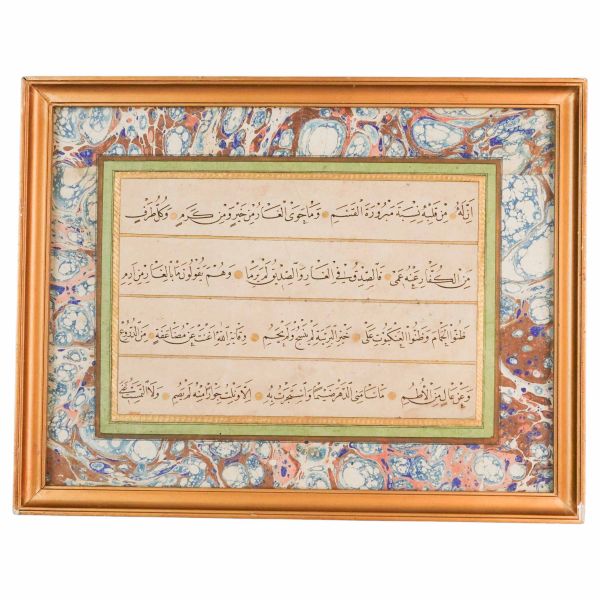 إن له من قلبه نسبة مبرورة القسم وما حوى الغار من خير ومن كرم وكل طرف
من الكفار عنه عمى فالصدق في الغار والصديق لم يرما وهم يقولون ما بالغار من ارم
ظنوا الحمام وظنوا العنكبوت على خير البرية لم تنسج ولم تحم وقاية الله اغنت عن مضاعفة من الدروع
وعن عال من الأطم ما سامنى الدهر ضيما واستجرت به الا ونلت جوارا منه لم يضم ولا التمست غنى